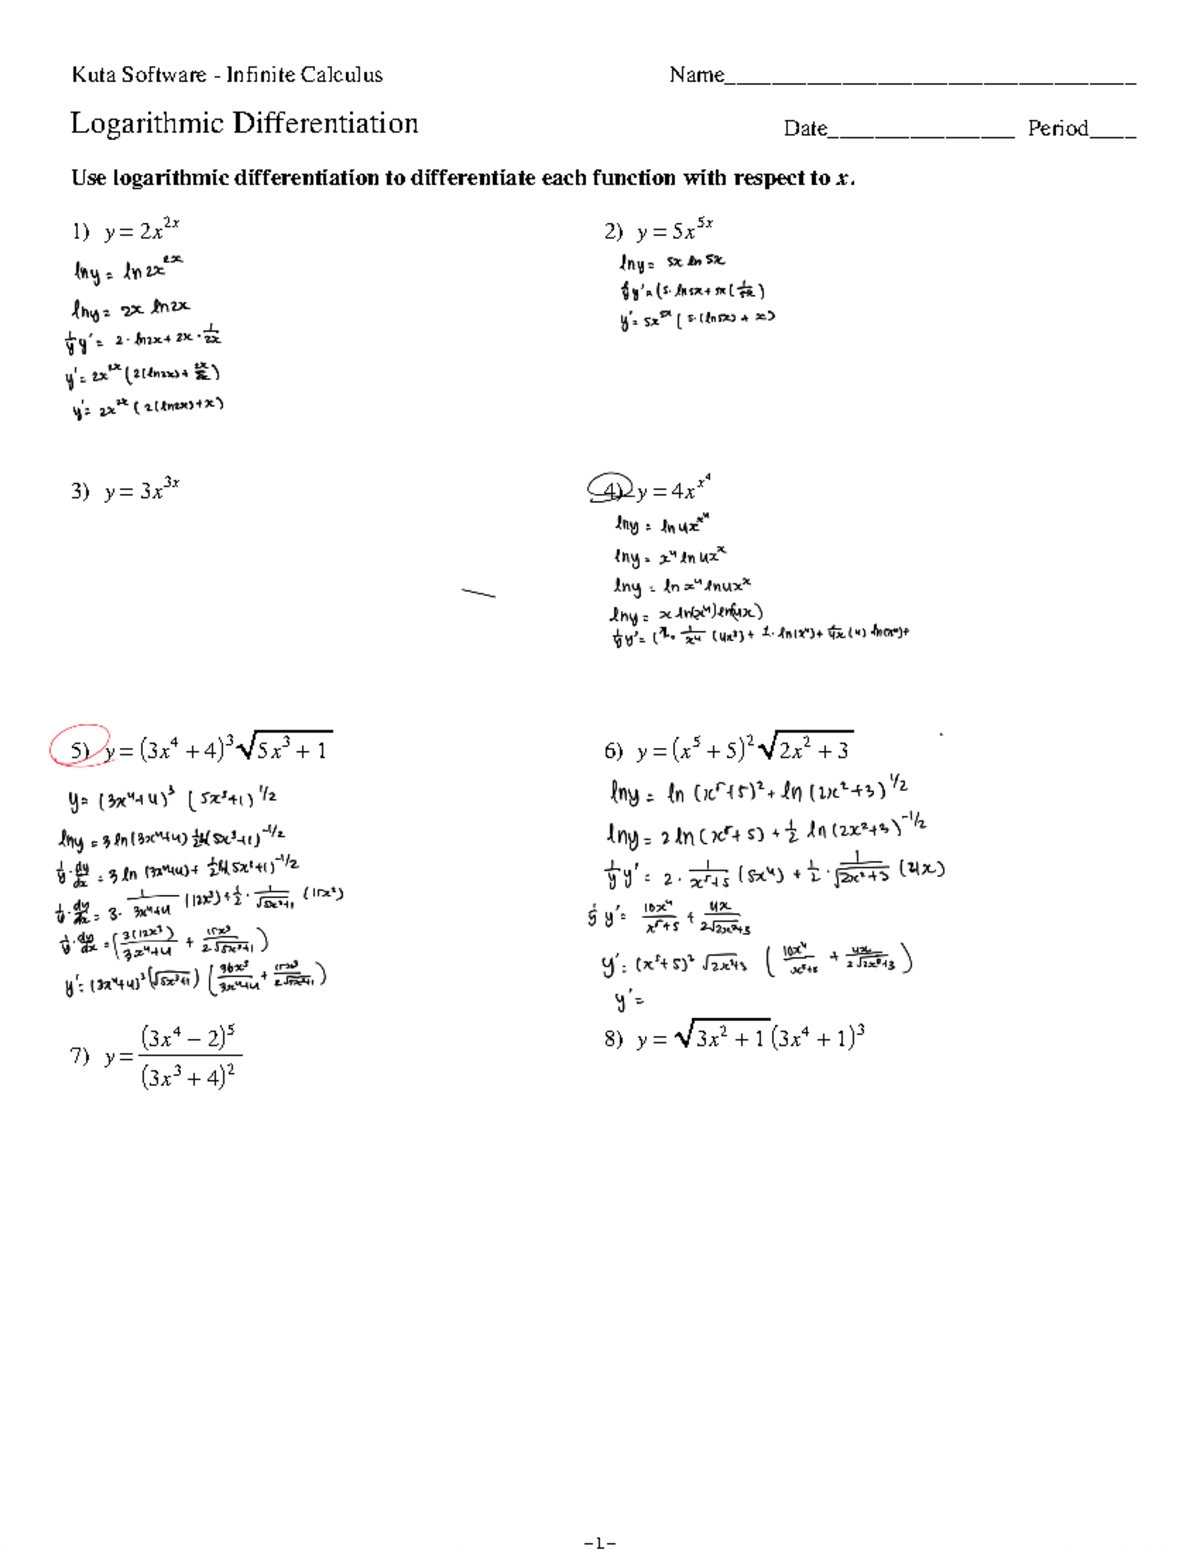 Kuta Software - Infinite Calculus
Name___________________________________
Logarithmic Differentiation
Date________________ Period____
Use logarithmic differentiation to differentiate each function with respect to x.
1) y = 2x^(2x)
lny = ln2x^(2x)
lny = 2x ln2x
1/y y' = 2· ln2x + 2x · 1/2x
y' = 2x^(2x) (2(ln2x) + 2x/2x)
y' = 2x^(2x) (2(ln2x)+x)
2) y = 5x^(5x)
lny = 5x ln 5x
1/y y' = (5· ln5x + 5x (1/5x)
y' = 5x^(5x) ( 5·(ln5x) + x)
3) y = 3x^(3x)
4) y = 4x^(x^4)
lny = ln4x^(x^4)
lny = x^4 ln 4x^x
lny = ln x^4 ln4x^x
lny = x ln(x^4) ln(4x)
1/y y' = ( 1/x^4 (4x^3) + 1· ln(x^4) + 1/4x (4) ln(x^4)+
5) y = (3x^4 + 4)^3 √(5x^3 + 1)
y = (3x^4+4)^3 (5x^3+1)^(1/2)
lny = 3 ln(3x^4+4) 1/2 (5x^3+1)^(-1/2)
1/y · dy/dx = 3 ln (3x^4+4) + 1/2 (5x^3+1)^(-1/2)
1/y · dy/dx = 3· 1/(3x^4+4) (12x^3) + 1/2 · 1/√(5x^3+1) (15x^2)
1/y · dy/dx = (3(12x^3)/(3x^4+4) + 15x^2/(2√(5x^3+1)))
y' = (3x^4+4)^3 (√(5x^3+1)) (36x^3/(3x^4+4) + 15x^2/(2√(5x^3+1)))
6) y = (x^5 + 5)^2 √(2x^2 + 3)
lny = ln (x^5+5)^2 + ln (2x^2+3)^(1/2)
lny = 2 ln (x^5+5) + 1/2 ln (2x^2+3)^(-1/2)
1/y y' = 2 · 1/(x^5+5) (5x^4) + 1/2 · 1/√(2x^2+3) (4x)
1/y y' = 10x^4/(x^5+5) + 4x/(2√(2x^2+3))
y' = (x^5+5)^2 √(2x^2+3) (10x^4/(x^5+5) + 4x/(2√(2x^2+3)))
y' =
7) y = (3x^4 − 2)^5/(3x^3 + 4)^2
8) y = √(3x^2 + 1) (3x^4 + 1)^3
-1-